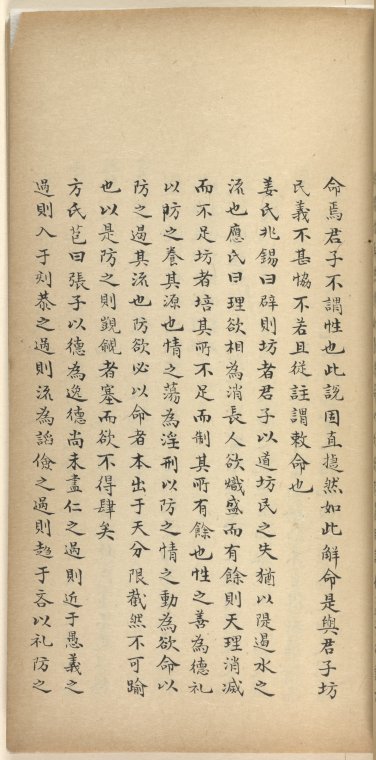 命焉君子不謂性也此説固直捷然如此解命是與君子坊
民義不甚協不若且從註謂敕命也
姜氏兆錫曰辟則坊者君子以道坊民之失猶以隄遏水之
流也應氏曰理欲相為消長人欲熾盛而有餘則天理消滅
而不足坊者培其所不足而制其所有餘也性之善為德礼
以防之養其源也情之蕩為淫刑以防之情之動為欲命以
防之遏其流也防欲必以命者本出于天分限截然不可踰
也以是防之則覬覦者塞而欲不得肆矣
方氏苞曰張子以德為逸德尚未盡仁之過則近于愚義之
過則入于刻恭之過則流為謟儉之過則趋于吝以礼防之